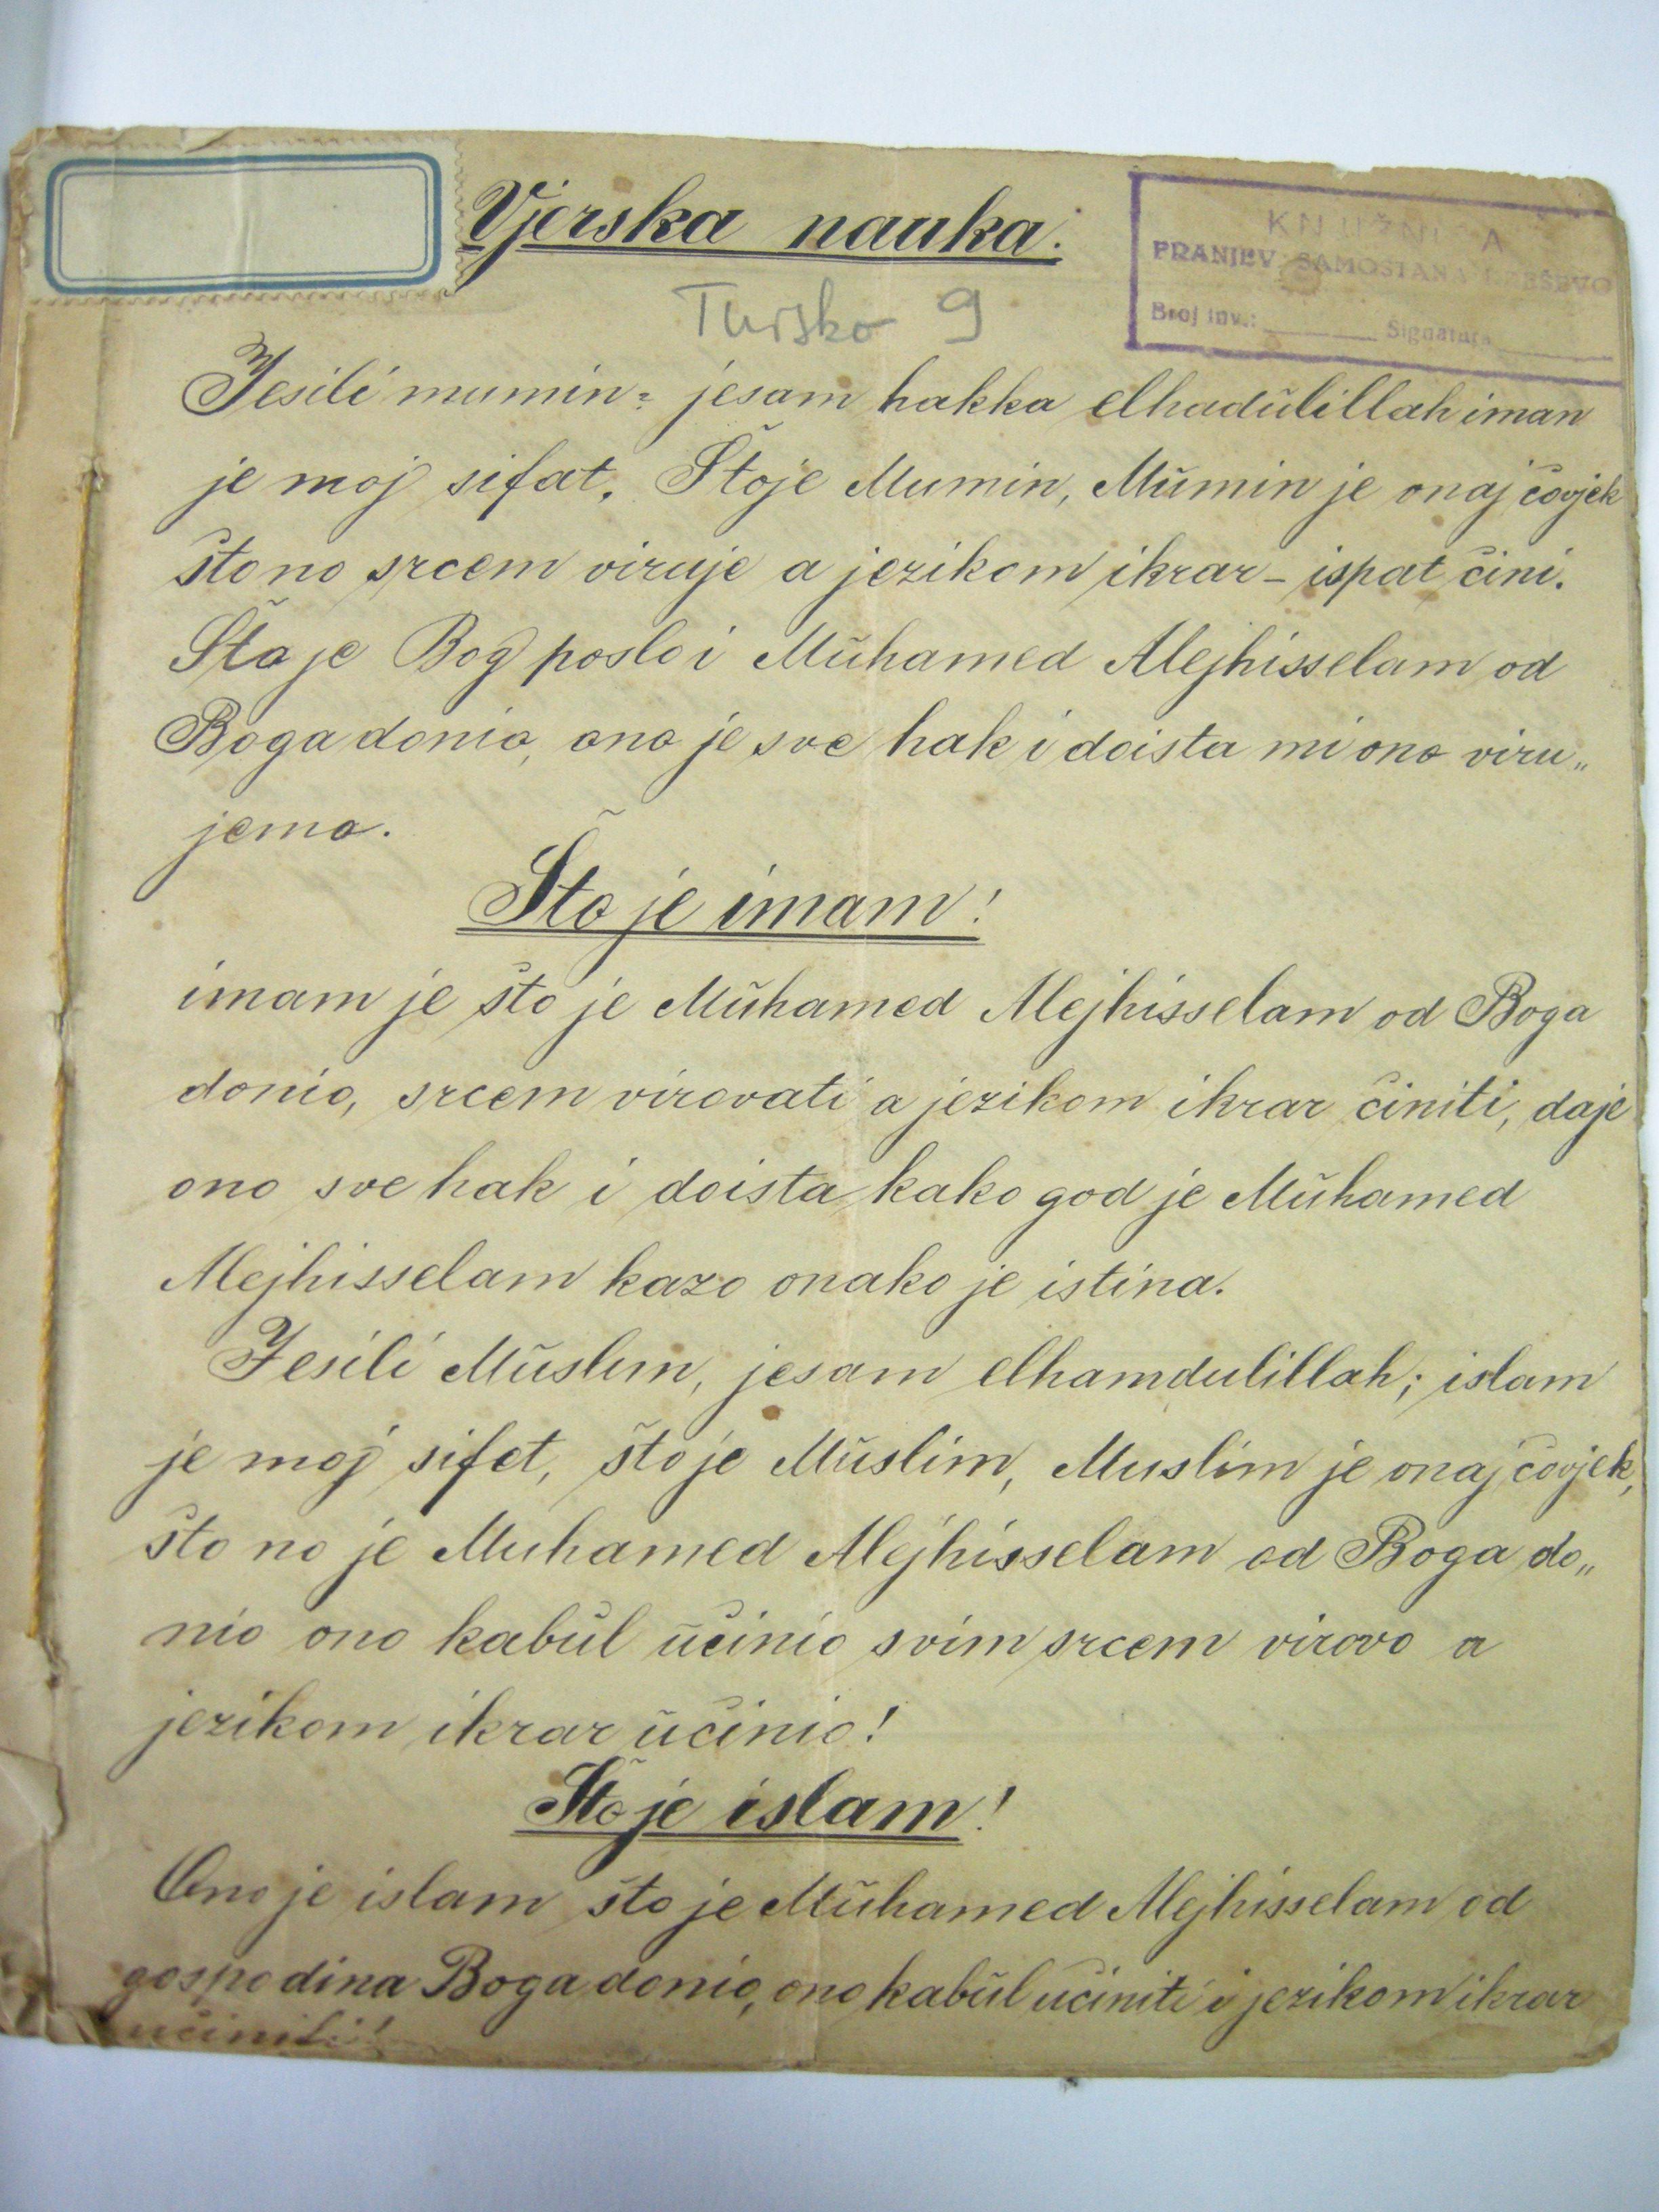 Vjerska nauka.
KNJIŽNICA
FRANJEV. SAMOSTANA KREŠEVO
Broj inv.: Signatura
Tursko 9
Jesili mumin? jesam hakka elhadŭlillah iman
je moj sifat. Štoje Mumin, Mŭmin je onaj čovjek
štono srcem viruje a jezikom ikrar – ispat čini.
Šta je Bog poslo i Mŭhamed Alejhisselam od
Boga donio, ono je sve hak i doista mi ono viru„
jemo.
Što je imam!
imam je što je Mŭhamed Alejhisselam od Boga
donio, srcem virovati a jezikom ikrar činiti, daje
ono sve hak i doista kako god je Mŭhamed
Alejhisselam kazo onako je istina.
Jesili Mŭslim, jesam elhamdulillah; islam
je moj sifet, što je Mŭslim, Muslim je onaj čovjek,
što no je Muhamed Alejhisselam od Boga do„
nio ono kabŭl ŭčinio svim srcem virovo a
jezikom ikrar ŭčinio!
Što je islam!
Ono je islam što je Mŭhamed Alejhisselam od
gospodina Boga donio, ono kabŭl učiniti i jezikom ikrar
učiniti!